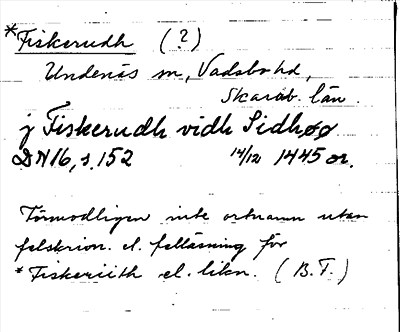 *Fiskerudh (?)
Undenäs sn, Vadsbo hd,
Skarab. län.
j Fiskerudh vidh Sidhøø
DN 16, s. 152 14/12 1445 or.
Förmodligen inte ortnamn utan
felskrivn. el. felläsning för
*Fiskeriith el. likn. (B.T.)